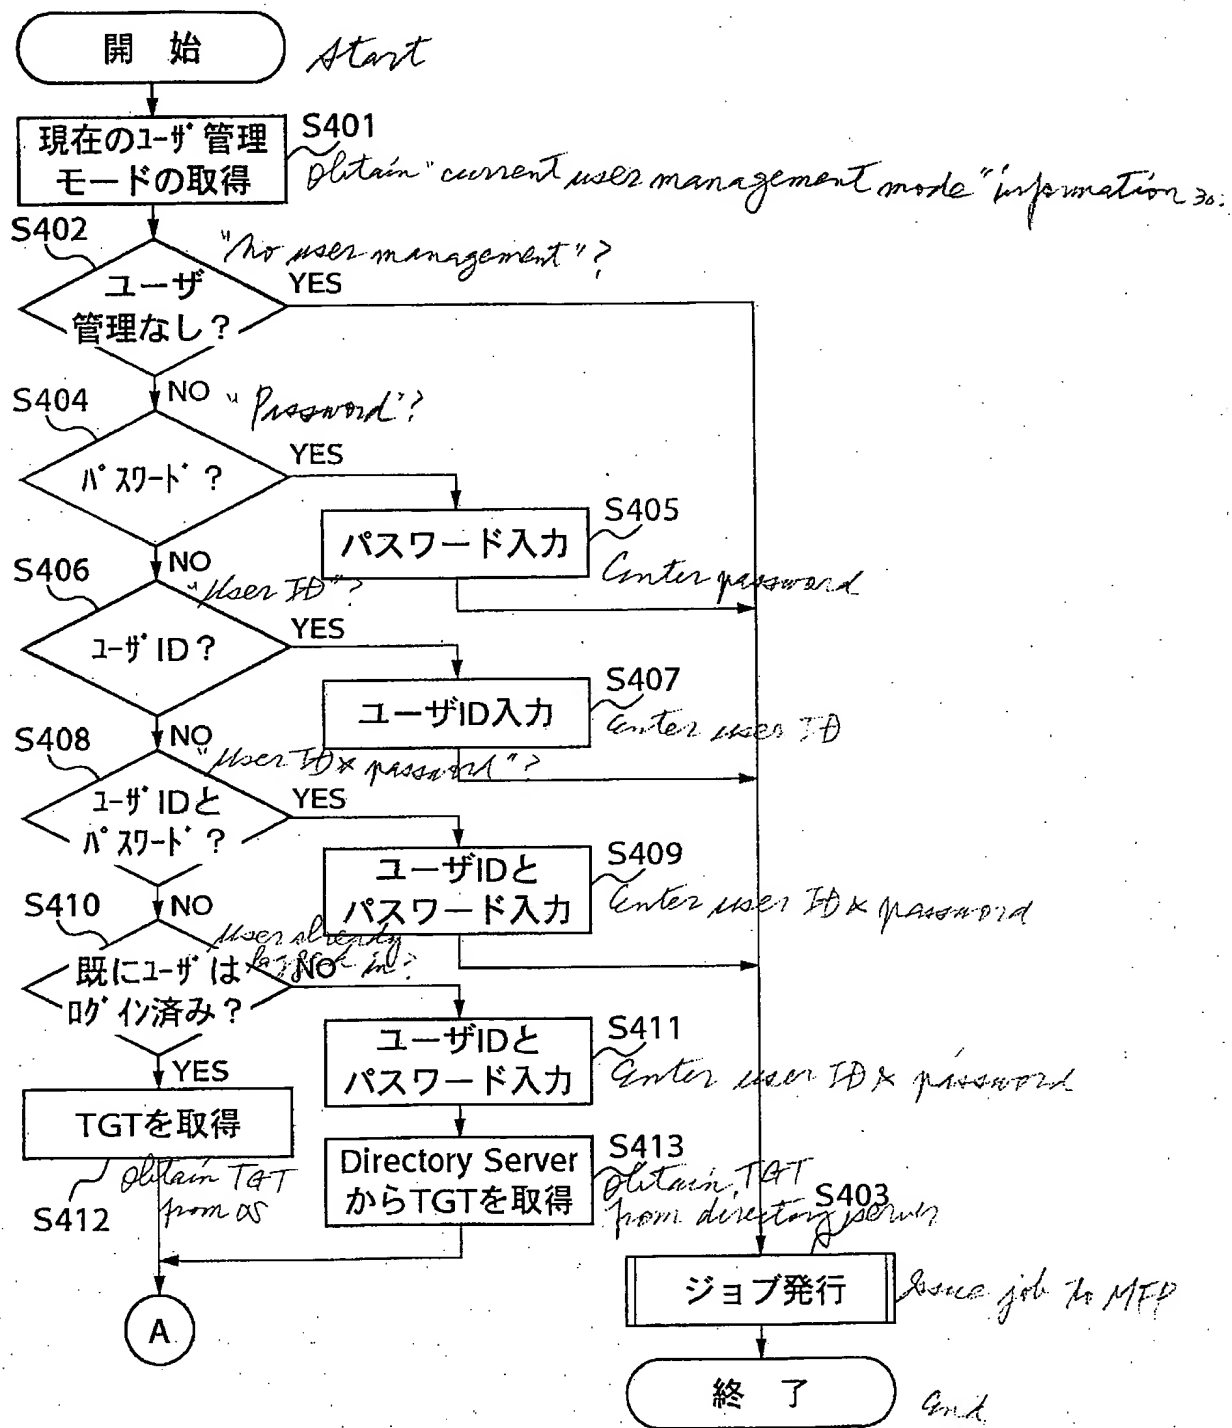 開 始
Start
S401
現在のﾕｰｻﾞ管理
モードの取得
Obtain "current user management mode" information
S402
"No user management"?
ユーザ
管理なし?
YES
NO
S404
"Password"?
ﾊﾟｽﾜｰﾄﾞ?
YES
S405
パスワード入力
Enter password
NO
S406
"User ID"?
ﾕｰｻﾞID?
YES
S407
ユーザID入力
Enter user ID
NO
S408
"User ID & password"?
ﾕｰｻﾞIDと
ﾊﾟｽﾜｰﾄﾞ?
YES
S409
ユーザIDと
パスワード入力
Enter user ID & password
NO
S410
User already
logged in?
既にﾕｰｻﾞは
ﾛｸﾞｲﾝ済み?
NO
S411
ユーザIDと
パスワード入力
Enter user ID & password
YES
TGTを取得
S412
Obtain TGT
from OS
S413
Directory Server
からTGTを取得
Obtain TGT
from directory server
S403
ジョブ発行
Issue job to MFP
A
終 了
End